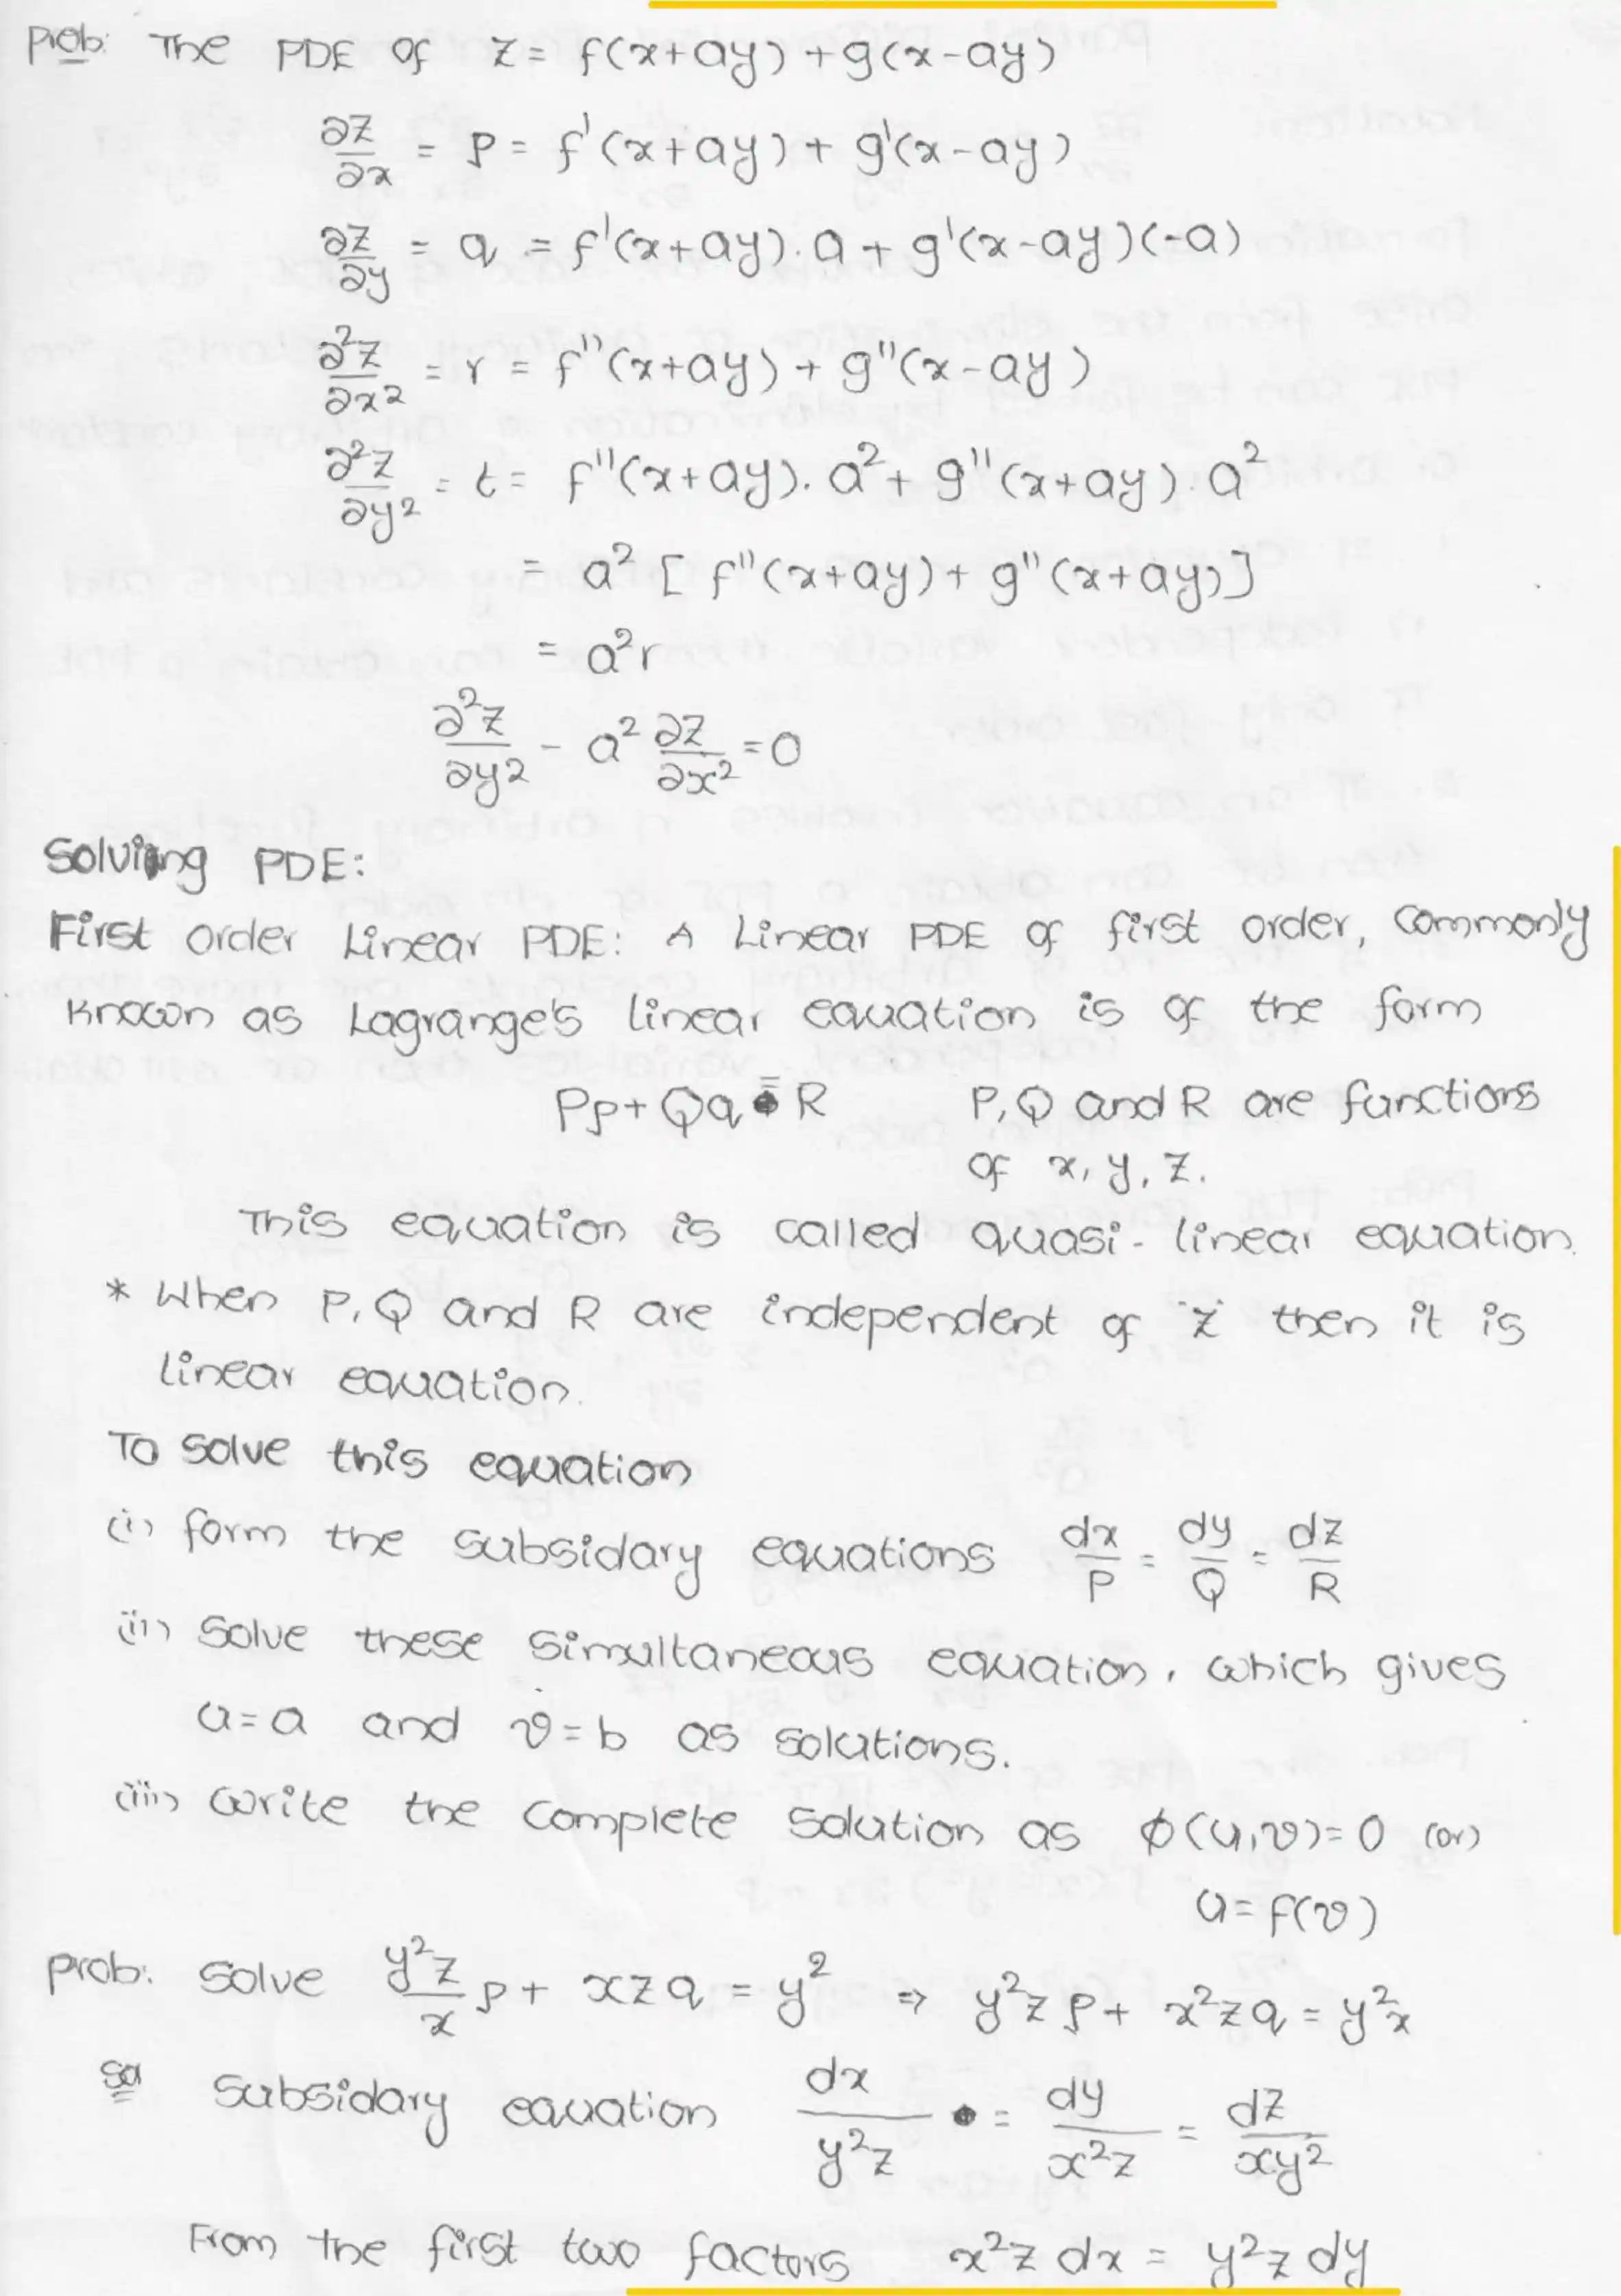 Prob: The PDE of z = f(x+ay) + g(x-ay)
∂z/∂x = p = f'(x+ay) + g'(x-ay)
∂z/∂y = q = f'(x+ay).a + g'(x-ay)(-a)
∂²z/∂x² = r = f''(x+ay) + g''(x-ay)
∂²z/∂y² = t = f''(x+ay).a² + g''(x+ay).a²
= a² [f''(x+ay) + g''(x+ay)]
= a²r
∂²z/∂y² - a² ∂z/∂x² = 0
Solving PDE:
First order Linear PDE: A Linear PDE of first order, commonly
known as Lagrange's linear equation is of the form
Pp + Qq = R P, Q and R are functions
of x, y, z.
This equation is called quasi-linear equation.
* When P, Q and R are independent of 'z' then it is
linear equation.
To solve this equation
(i) form the subsidary equations, dx/P = dy/Q = dz/R
(ii) Solve these simultaneous equation, which gives
u = a and v = b as solutions.
(iii) write the complete solution as φ(u,v) = 0 (or)
u = f(v)
Prob: Solve y²z/x p + xzq = y² ⇒ y²z p + x²zq = y²x
Sol Subsidary equation dx/y²z = dy/x²z = dz/xy²
From the first two factors x²z dx = y²z dy